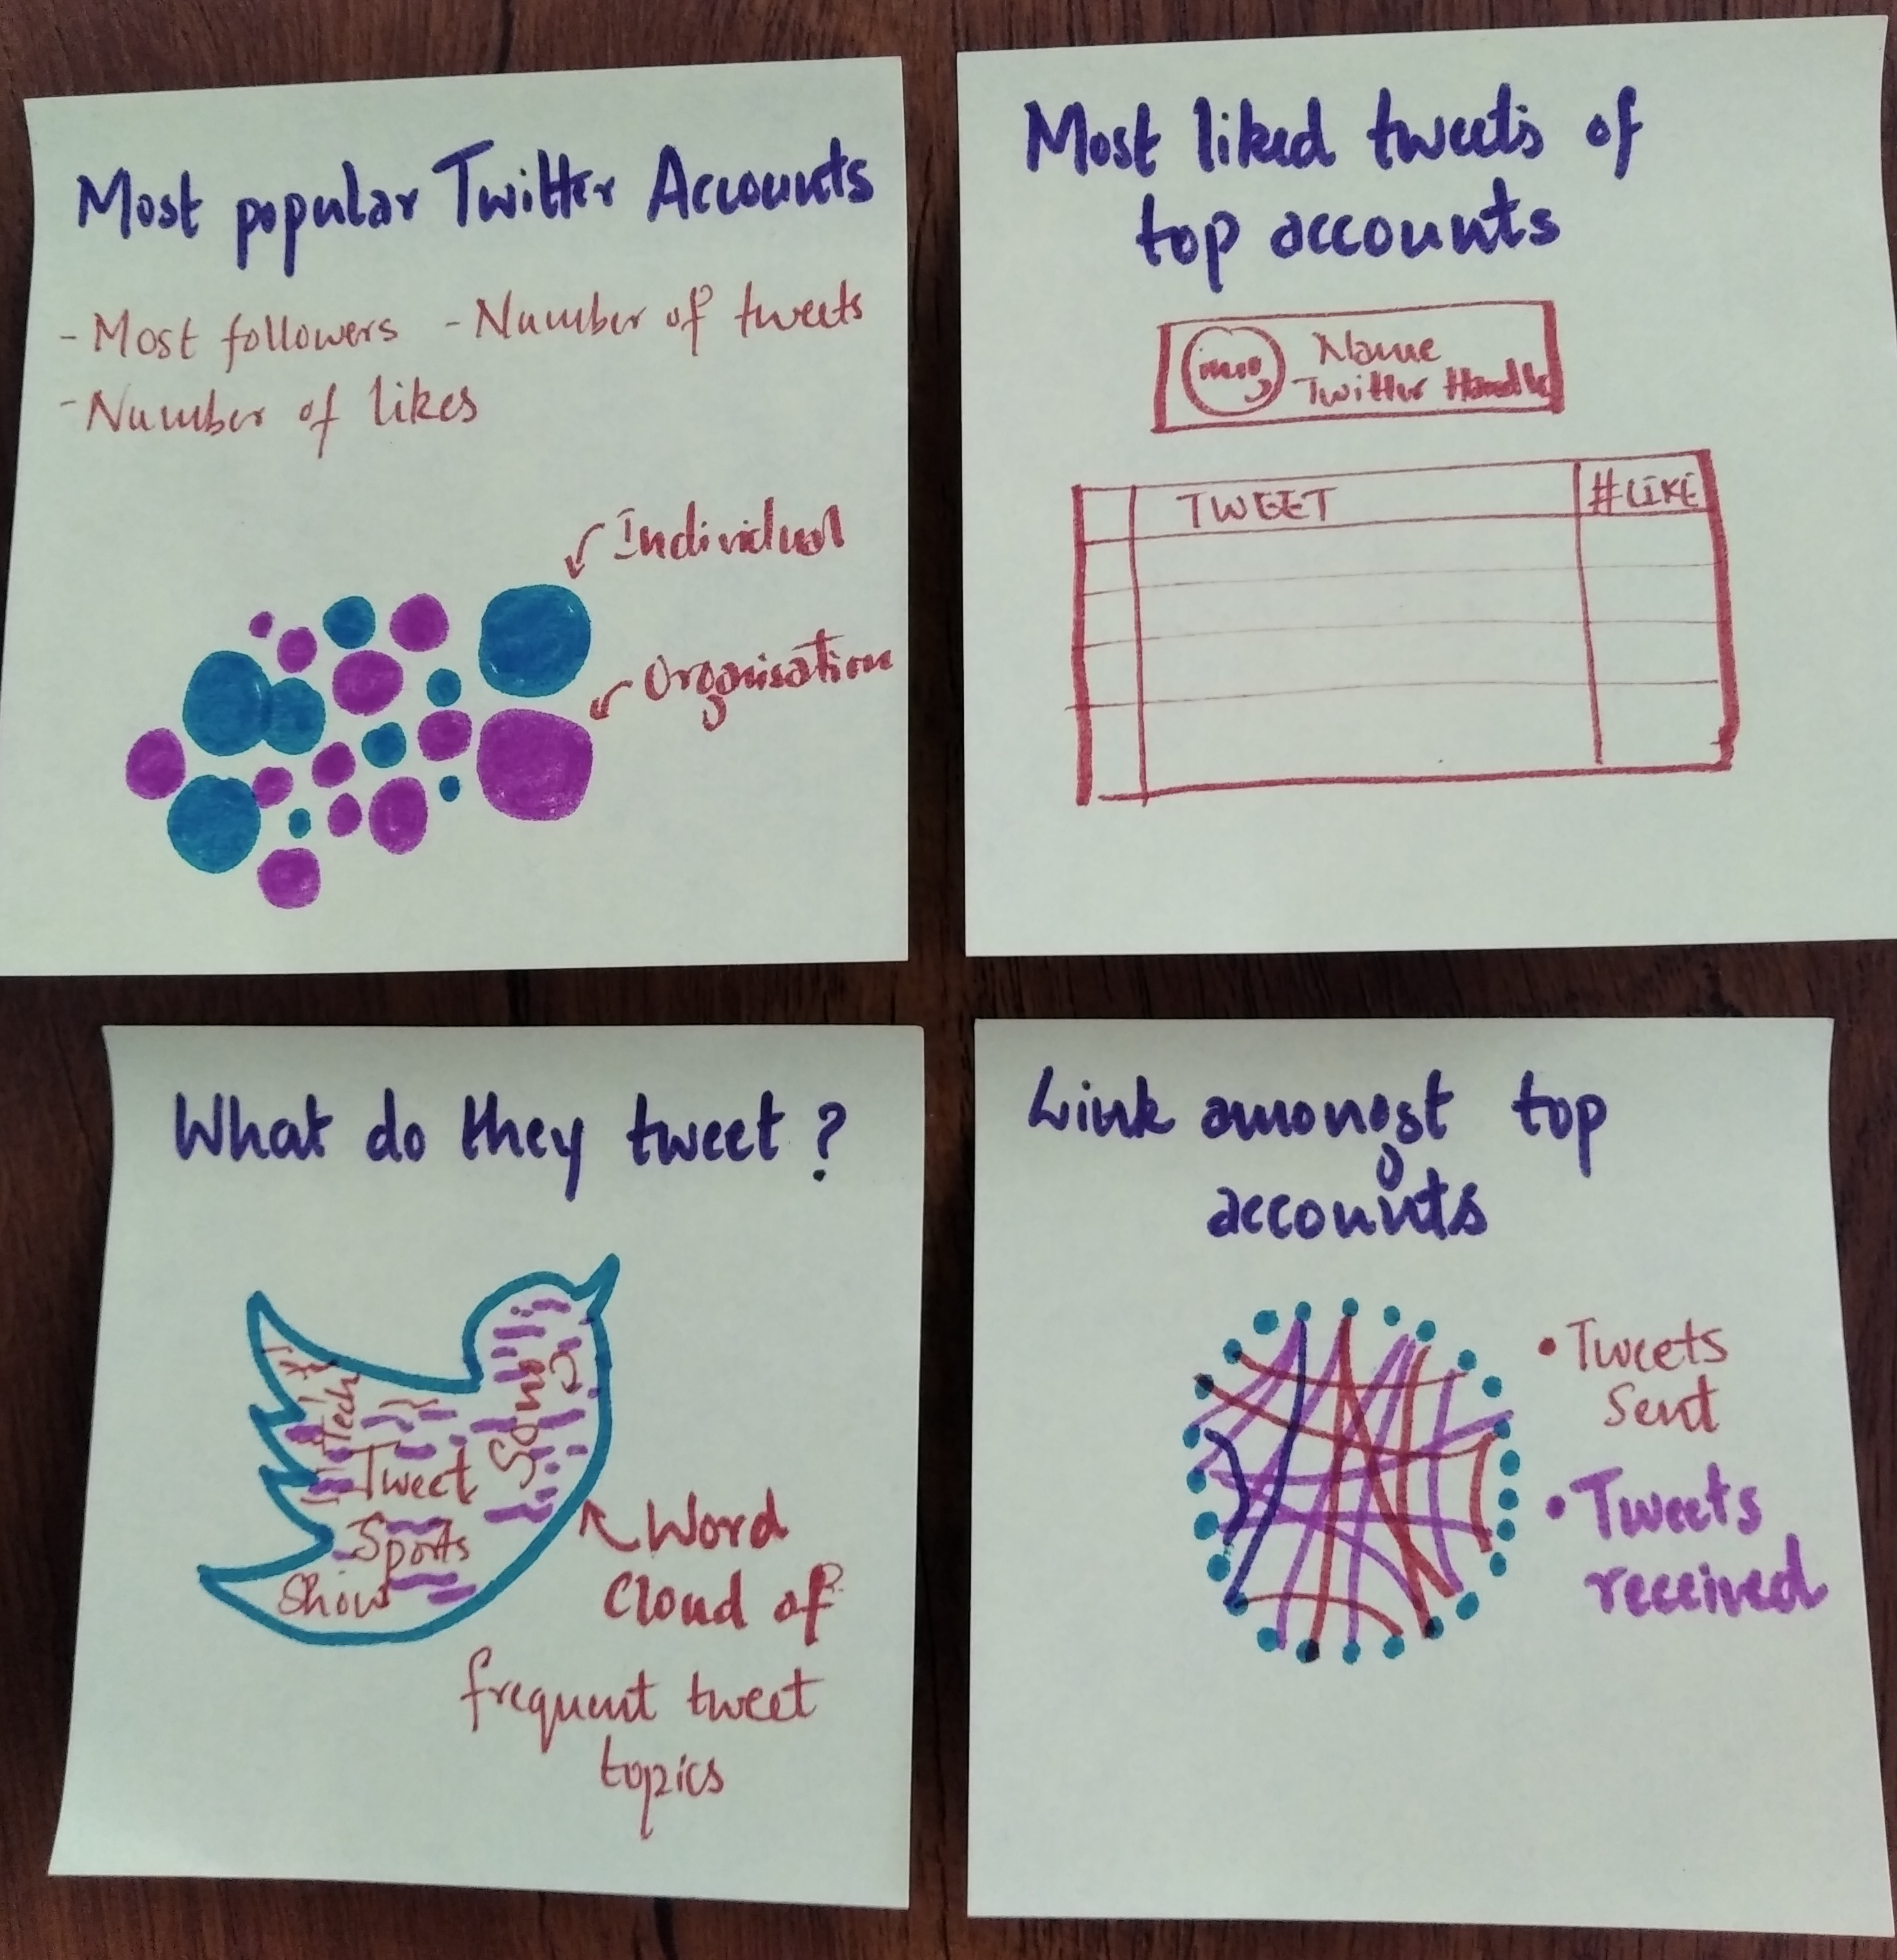 Most popular Twitter Accounts
- Most followers - Number of tweets
- Number of likes
Individual
Organisation
Most liked tweets of
top accounts
img Name
Twitter Handle
TWEET #LIKE
What do they tweet?
Tech
Song
Tweet
Sports
Show
Word
Cloud of
frequent tweet
topics
Link amongst top
accounts
• Tweets
Sent
• Tweets
received